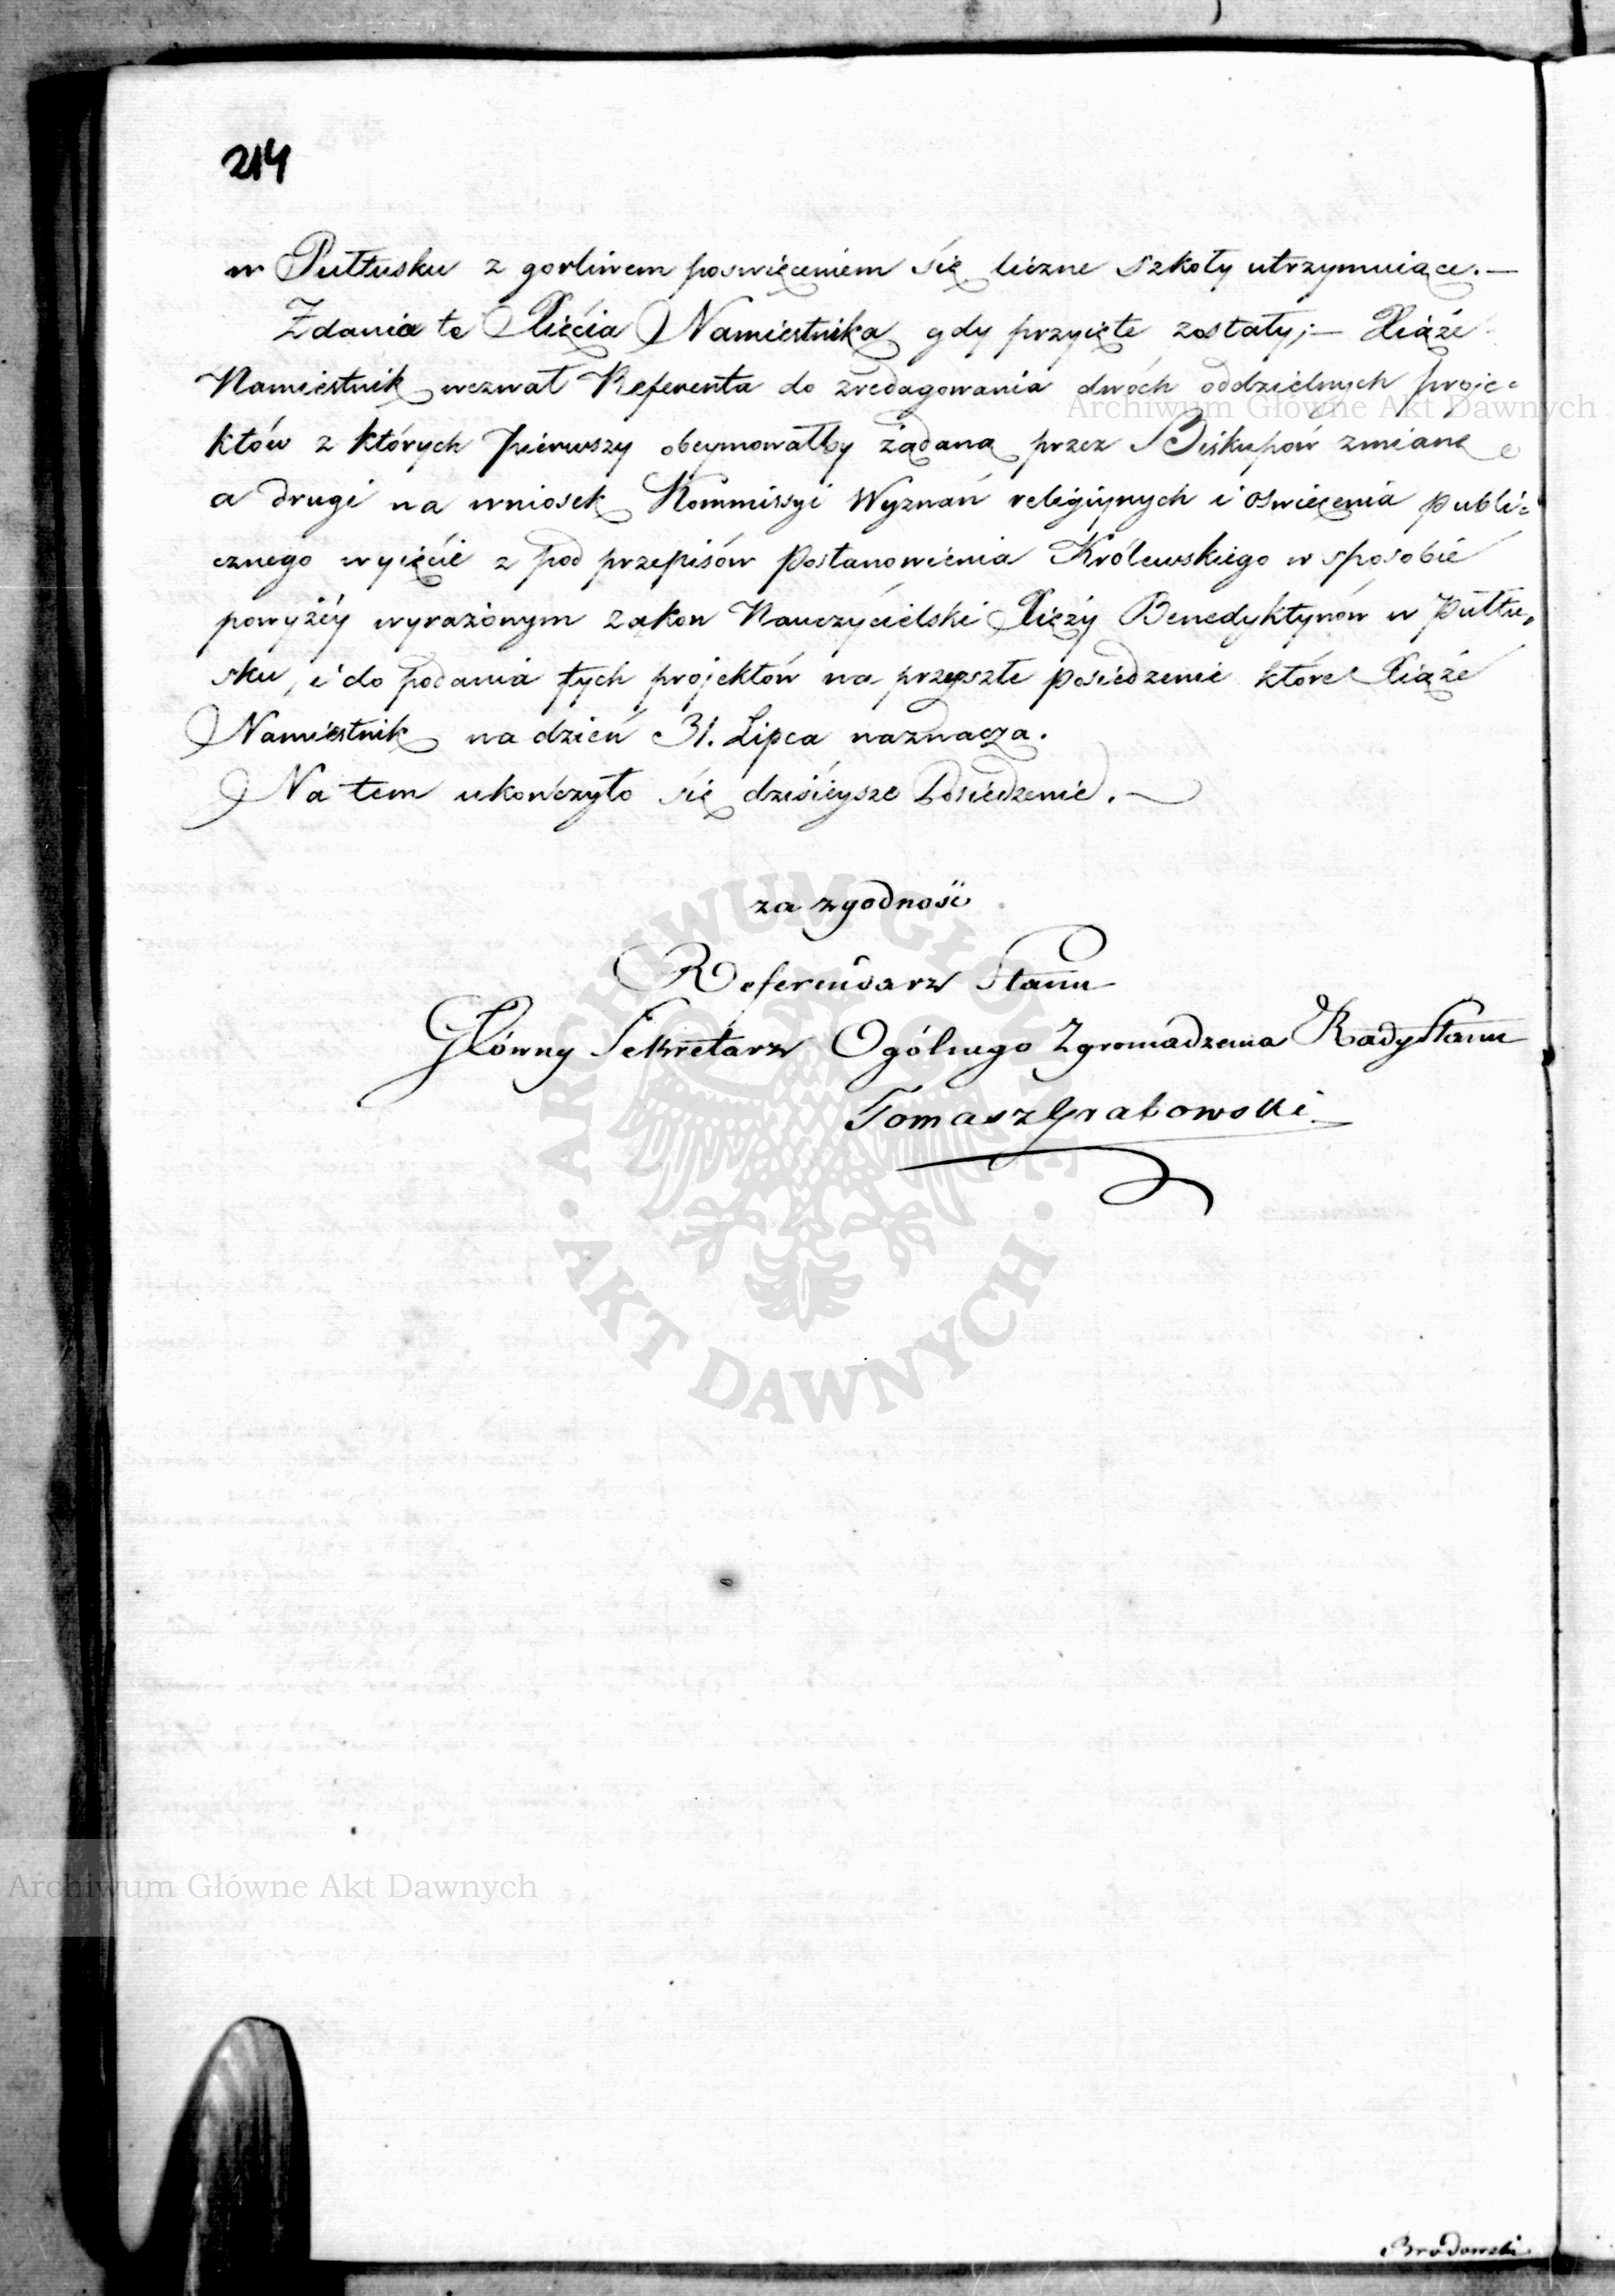 214
w Pułtusku z gorliwem poswięceniem się liczne szkoły utrzymuiące.—
Zdania te Xięcia Namiestnika gdy przyięte zostały;— Xiąże
Namiestnik wezwał Referenta do zredagowania dwóch oddzielnych proie=
Archiwum Główne Akt Dawnych
któw z których pierwszy obeymowałby żądaną przez Biskupów zmianę
a drugi na wniosek Kommissyi Wyznań religiynych i oswiecenia publi=
cznego wyięcie z pod przepisów Postanowienia Królewskiego w sposobie
powyżéy wyrażonym zakon Nauczycielski Xięży Benedyktynów w Pułtu„
sku, i do podania tych projektów na przyszłe posiedzenie które Xiąże
Namiestnik na dzień 31. Lipca naznacza.
Na tem ukończyło się dzisieysze Posiedzenie.—
za zgodność
Referendarz Stanu
Główny Sekretarz Ogólnego Zgromadzenia Rady Stanu
Tomasz Grabowski
ARCHIWUM GŁÓWNE
· AKT DAWNYCH ·
Archiwum Główne Akt Dawnych
Brodowski